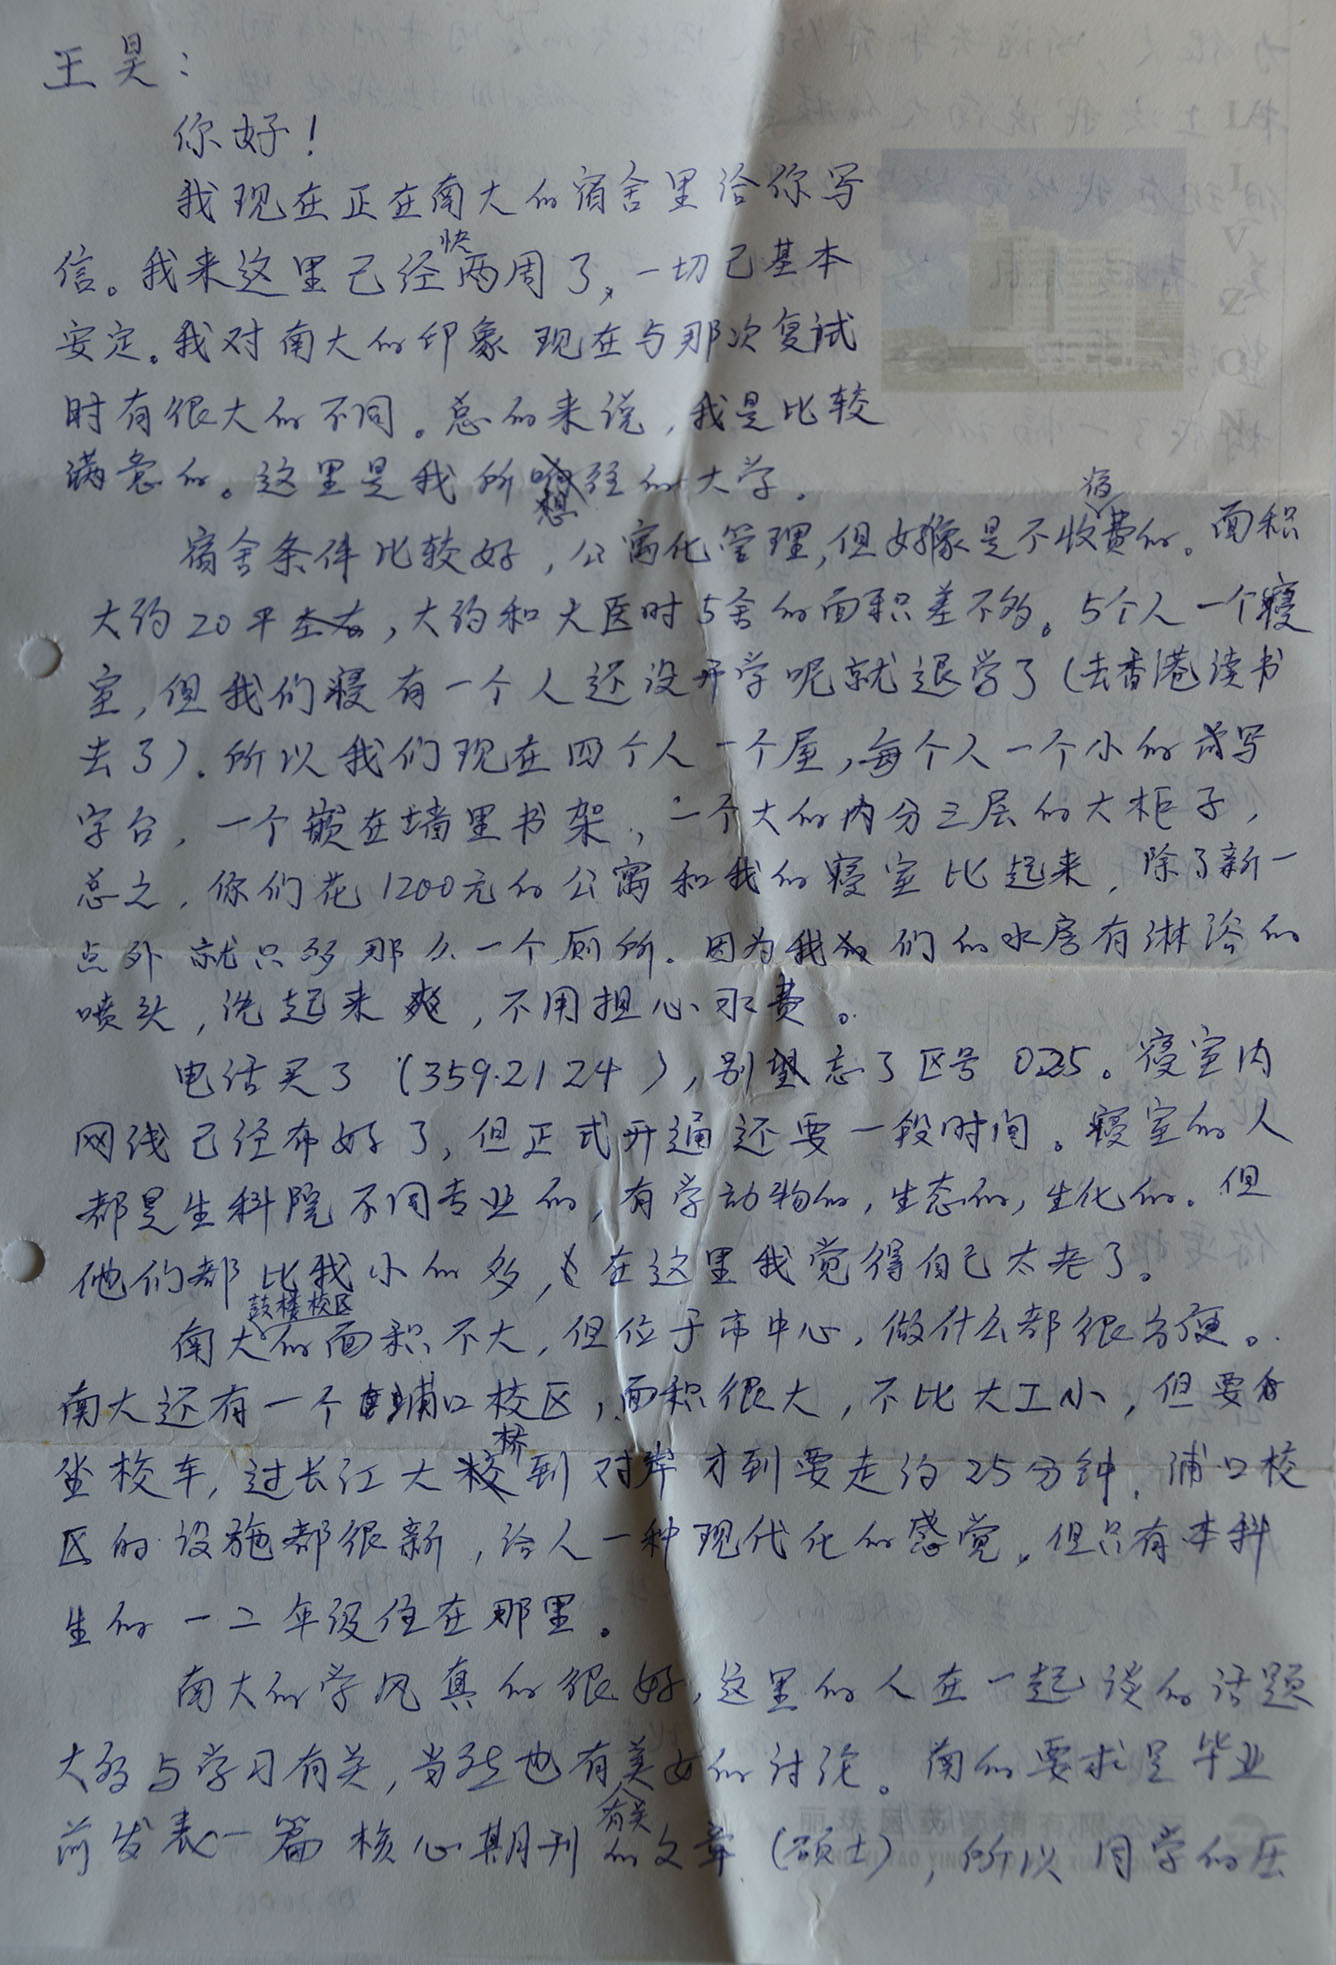 王昊：
你好！
我现在正在南大的宿舍里给你写
信。我来这里已经快两周了，一切已基本
安定。我对南大的印象现在与那次复试
时有很大的不同。总的来说，我是比较
满意的。这里是我所想往的大学。
宿舍条件比较好，公寓化管理，但好像是不收宿费的。面积
大约20平左右，大约和大医时5舍的面积差不多。5个人一个寝
室，但我们寝有一个人还没开学呢就退学了（去香港读书
去了）。所以我们现在四个人一个屋，每个人一个小的写
字台，一个嵌在墙里书架，一个大的内分三层的大柜子，
总之，你们花1200元的公寓和我的寝室比起来，除了新一
点外就只多那么一个厕所。因为我们的水房有淋浴的
喷头，洗起来爽，不用担心水费。
电话买了（359.2124），别忘了区号025。寝室内
网线已经布好了，但正式开通还要一段时间。寝室的人
都是生科院不同专业的，有学动物的，生态的，生化的。但
他们都比我小的多，在这里我觉得自己太老了。
南大鼓楼校区的面积不大，但位于市中心，做什么都很方便。
南大还有一个浦口校区，面积很大，不比大工小，但要
坐校车，过长江大桥到对岸才到要走约25分钟。浦口校
区的设施都很新，给人一种现代化的感觉。但只有本科
生的一二年级住在那里。
南大的学风真的很好，这里的人在一起谈的话题
大多与学习有关，当然也有美女的讨论。南的要求是毕业
前发表一篇核心期刊有关的文章（硕士），所以同学的压